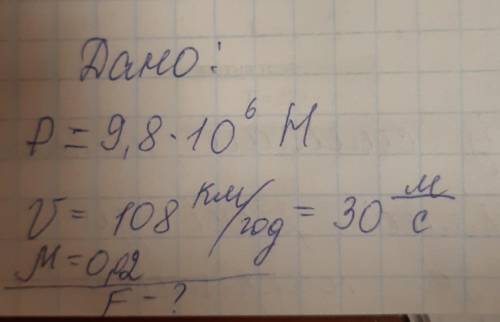 Дано:
P = 9,8·10⁶ Н
V = 108 км/год = 30 м/с
M = 0,02
F - ?